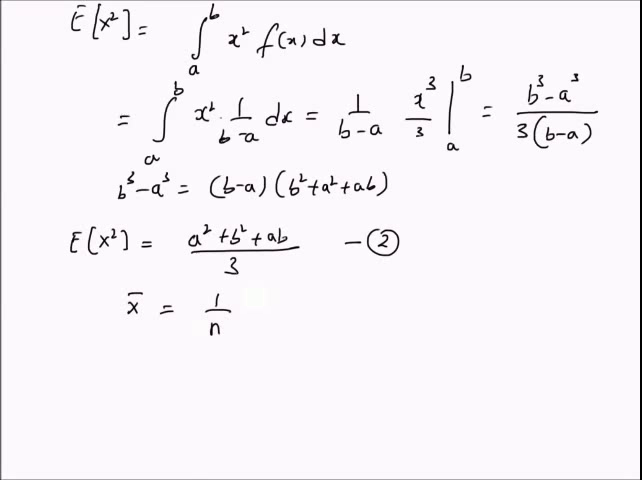 E[x²] = ∫ₐᵇ x² f(x) dx
= ∫ₐᵇ x² · 1/(b-a) dx = 1/(b-a) x³/3 |ₐᵇ = (b³-a³)/(3(b-a))
b³-a³ = (b-a) (b²+a²+ab)
E[x²] = (a²+b²+ab)/3 -②
x̄ = 1/n